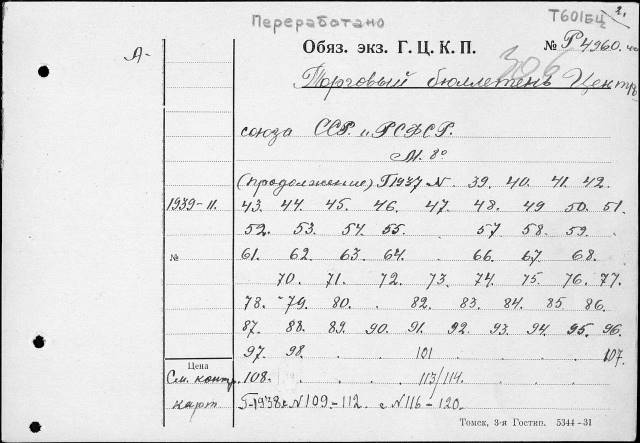 Переработано
Т601БЦ 2.
Обяз. экз. Г. Ц. К. П. № Р4960.
306
А-
Торговый бюллетень Центр
союза ССР. и РСФСР.
М. 8°
(продолжение) Г1937 N. 39. 40. 41. 42.
1939-11. 43. 44. 45. 46. 47. 48. 49 50. 51.
52. 53. 54. 55. 57 58. 59.
№ 61. 62. 63. 64. 66. 67. 68.
70. 71. 72. 73. 74. 75. 76. 77.
78. 79. 80. 82. 83. 84. 85. 86.
87. 88. 89. 90. 91. 92. 93. 94. 95. 96.
97. 98. 101 107.
Цена
См. контр. 108. 113/114.
карт Г-1938г. N109-112. с N116-120.
Томск, 3-я Гостип. 5344-31